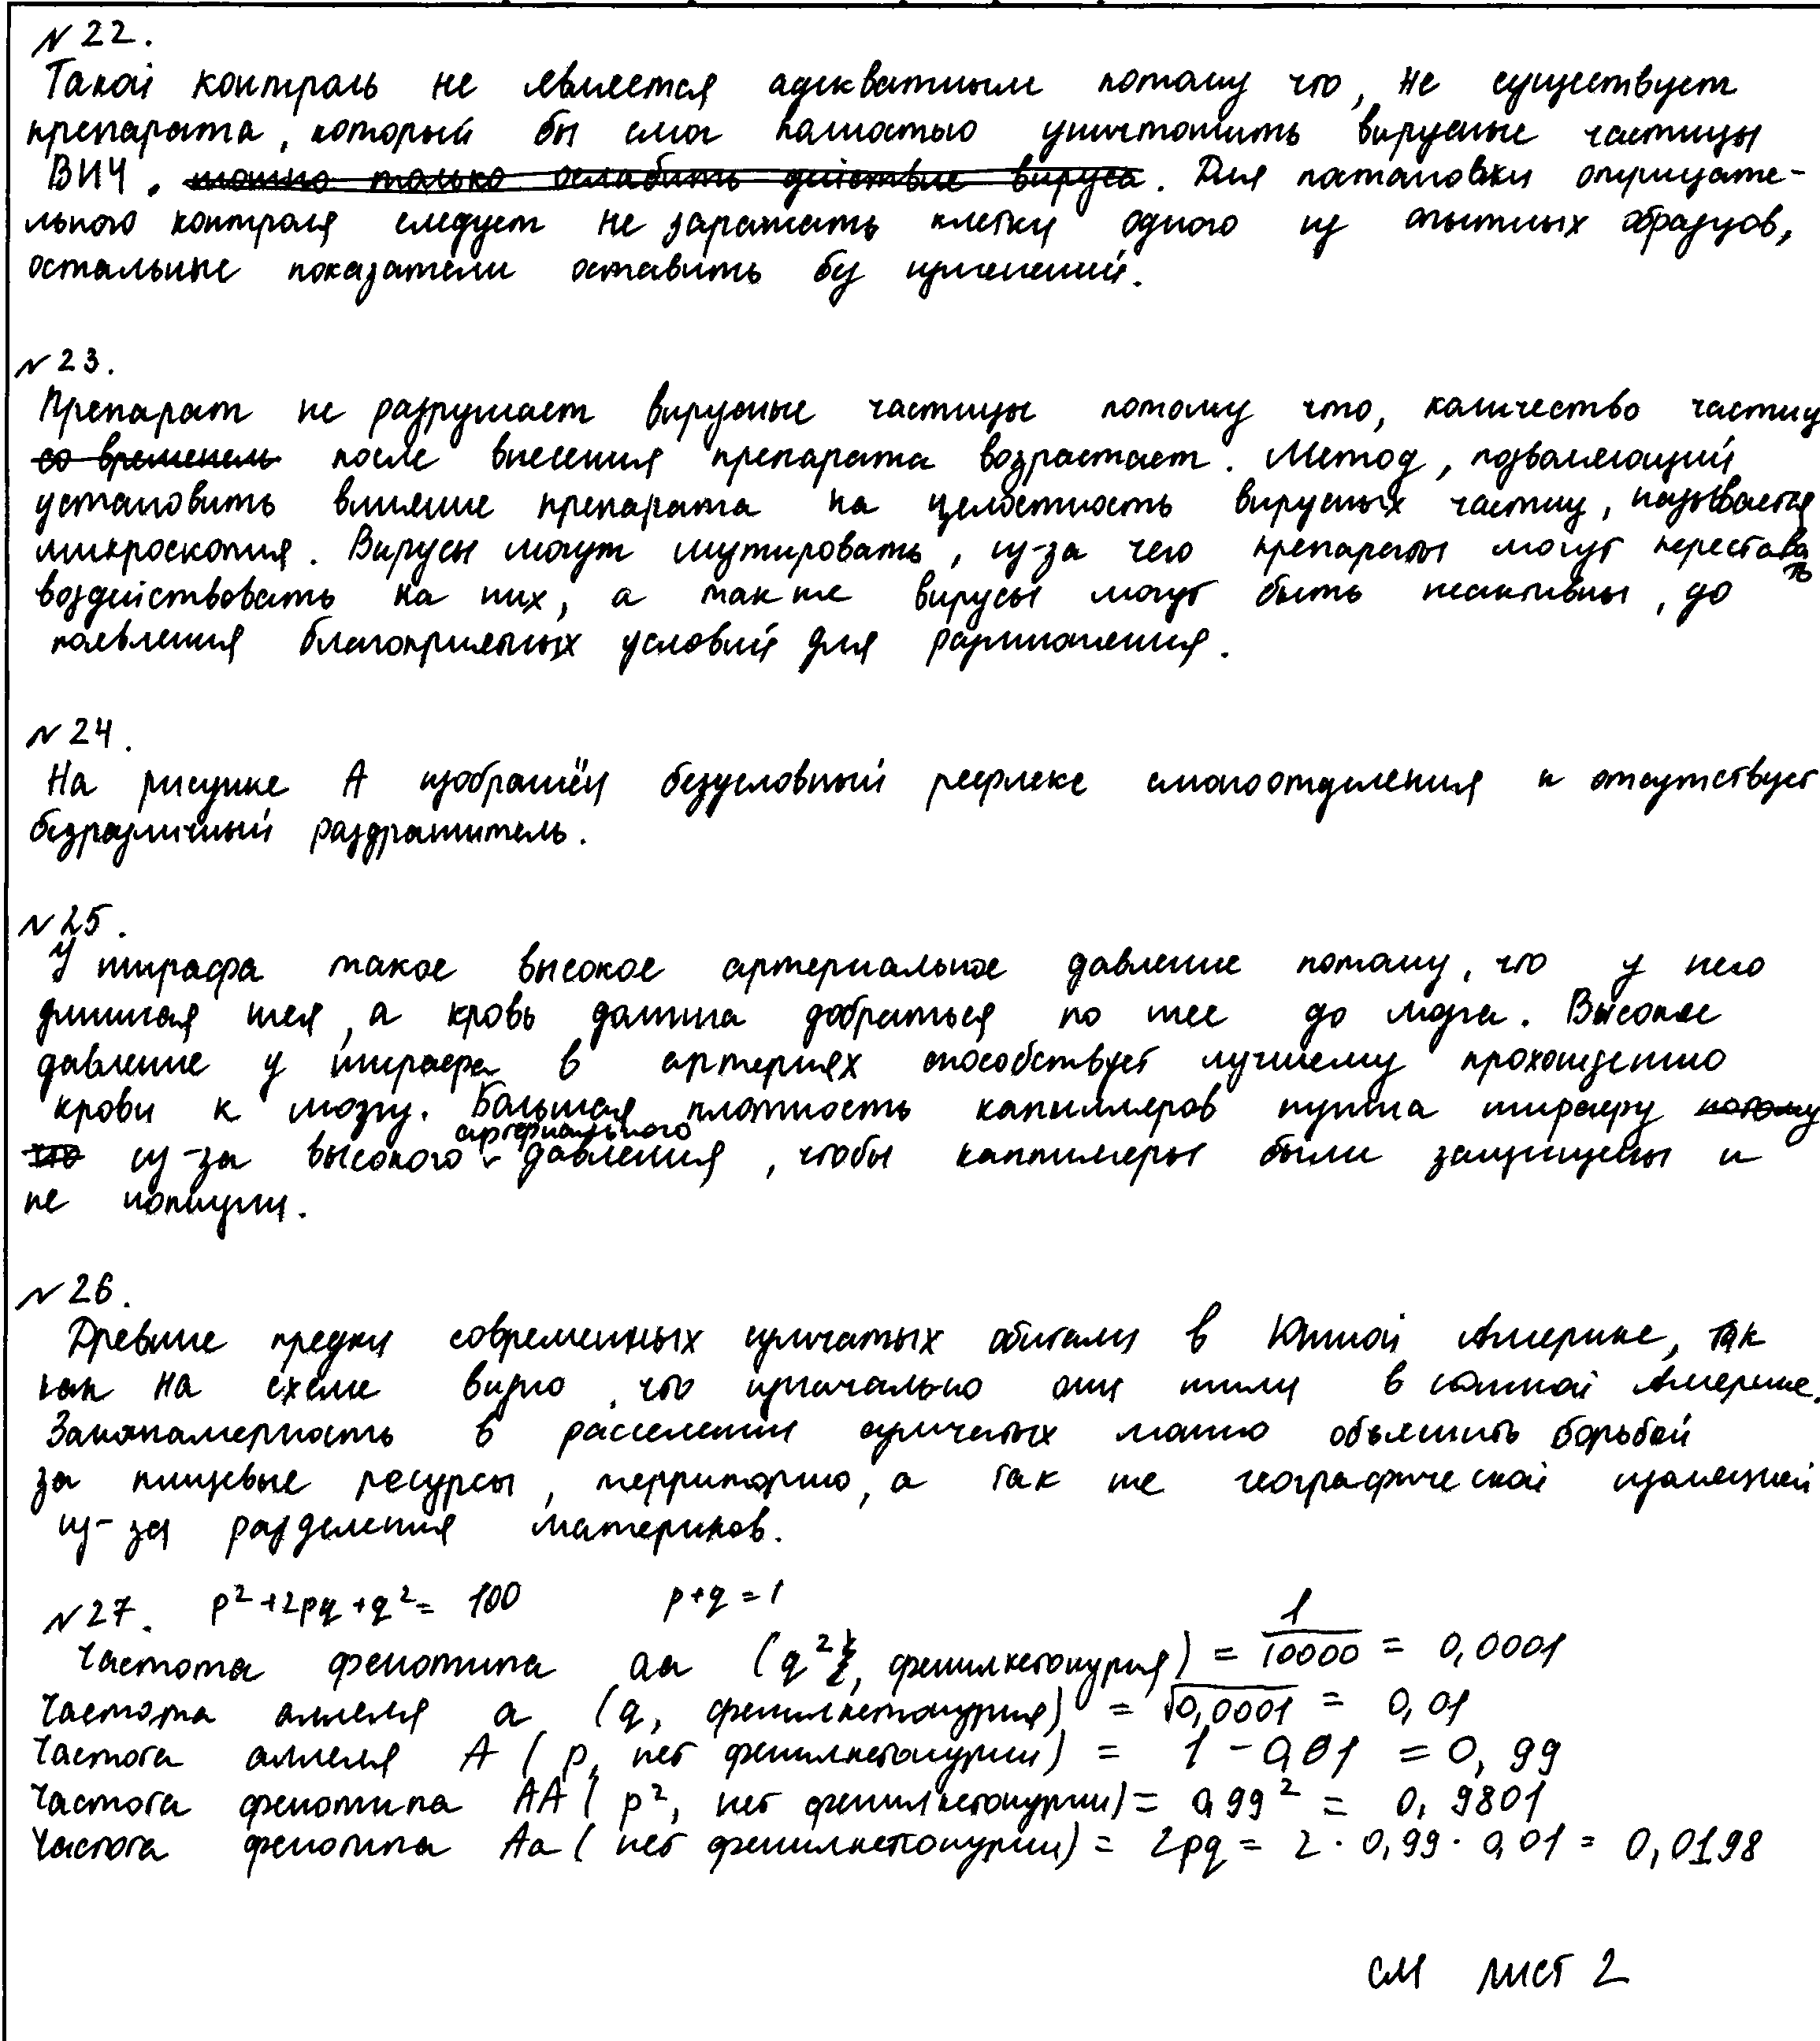 №22.
Такой контроль не является адекватным потому что, не существует
препарата, который бы смог полностью уничтожить вирусные частицы
ВИЧ. можно только ослабить действие вируса. Для постановки отрицате-
льного контроля следует не заражать клетки одного из опытных образцов,
остальные показатели оставить без изменений.
№23.
Препарат не разрушает вирусные частицы потому что, количество частиц
со временем после внесения препарата возрастает. Метод, позволяющий
установить влияние препарата на целостность вирусных частиц, называется
микроскопия. Вирусы могут мутировать, из-за чего препараты могут перестать
воздействовать на них, а так же вирусы могут быть неактивны, до
появления благоприятных условий для размножения.
№24.
На рисунке А изображён безусловный рефлекс слюноотделения и отсутствует
безразличный раздражитель.
№25.
У жирафа такое высокое артериальное давление потому, что у него
длинная шея, а кровь должна добраться по шее до мозга. Высокое
давление у жирафа в артериях способствует лучшему прохождению
крови к мозгу. Большая плотность капилляров нужна жирафу потому
что из-за высокого артериального давления, чтобы капилляры были защищены и
не лопнули.
№26.
Древние предки современных сумчатых обитали в Южной Америке, так
как на схеме видно, что изначально они жили в южной Америке.
Закономерность в расселении сумчатых можно объяснить борьбой
за пищевые ресурсы, территорию, а так же географической изоляцией
из-за разделения материков.
№27. p²+2pq+q²= 100 p+q=1
Частота фенотипа аа (q², фенилкетонурия) = 1/10000 = 0,0001
Частота аллеля а (q, фенилкетонурия) = √0,0001 = 0,01
Частота аллеля А (p, нет фенилкетонурии) = 1 - 0,01 = 0,99
Частота фенотипа АА (p², нет фенилкетонурии) = 0,99² = 0,9801
Частота фенотипа Аа (нет фенилкетонурии) = 2pq = 2 · 0,99 · 0,01 = 0,0198
см лист 2